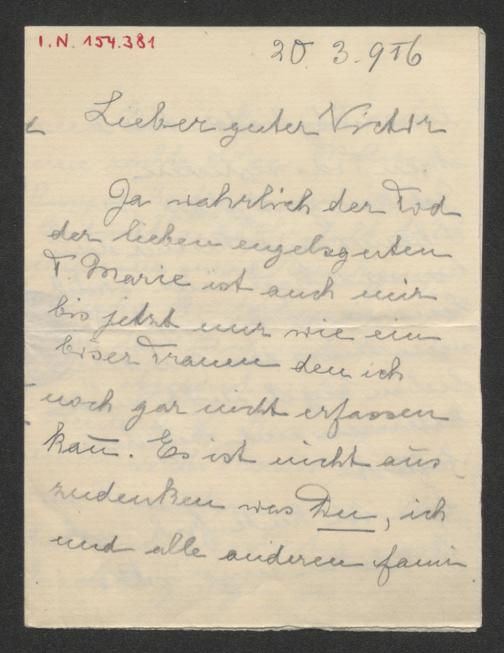 I.N. 154.381
20. 3. 916
Lieber guter Victor
Ja wahrlich der Tod
der lieben engelsguten
T. Marie ist auch mir
bis jetzt nur wie ein
böser Traum den ich
noch gar nicht erfassen
kan̄. Es ist nicht aus
zudenken was Du, ich
und alle anderen fami